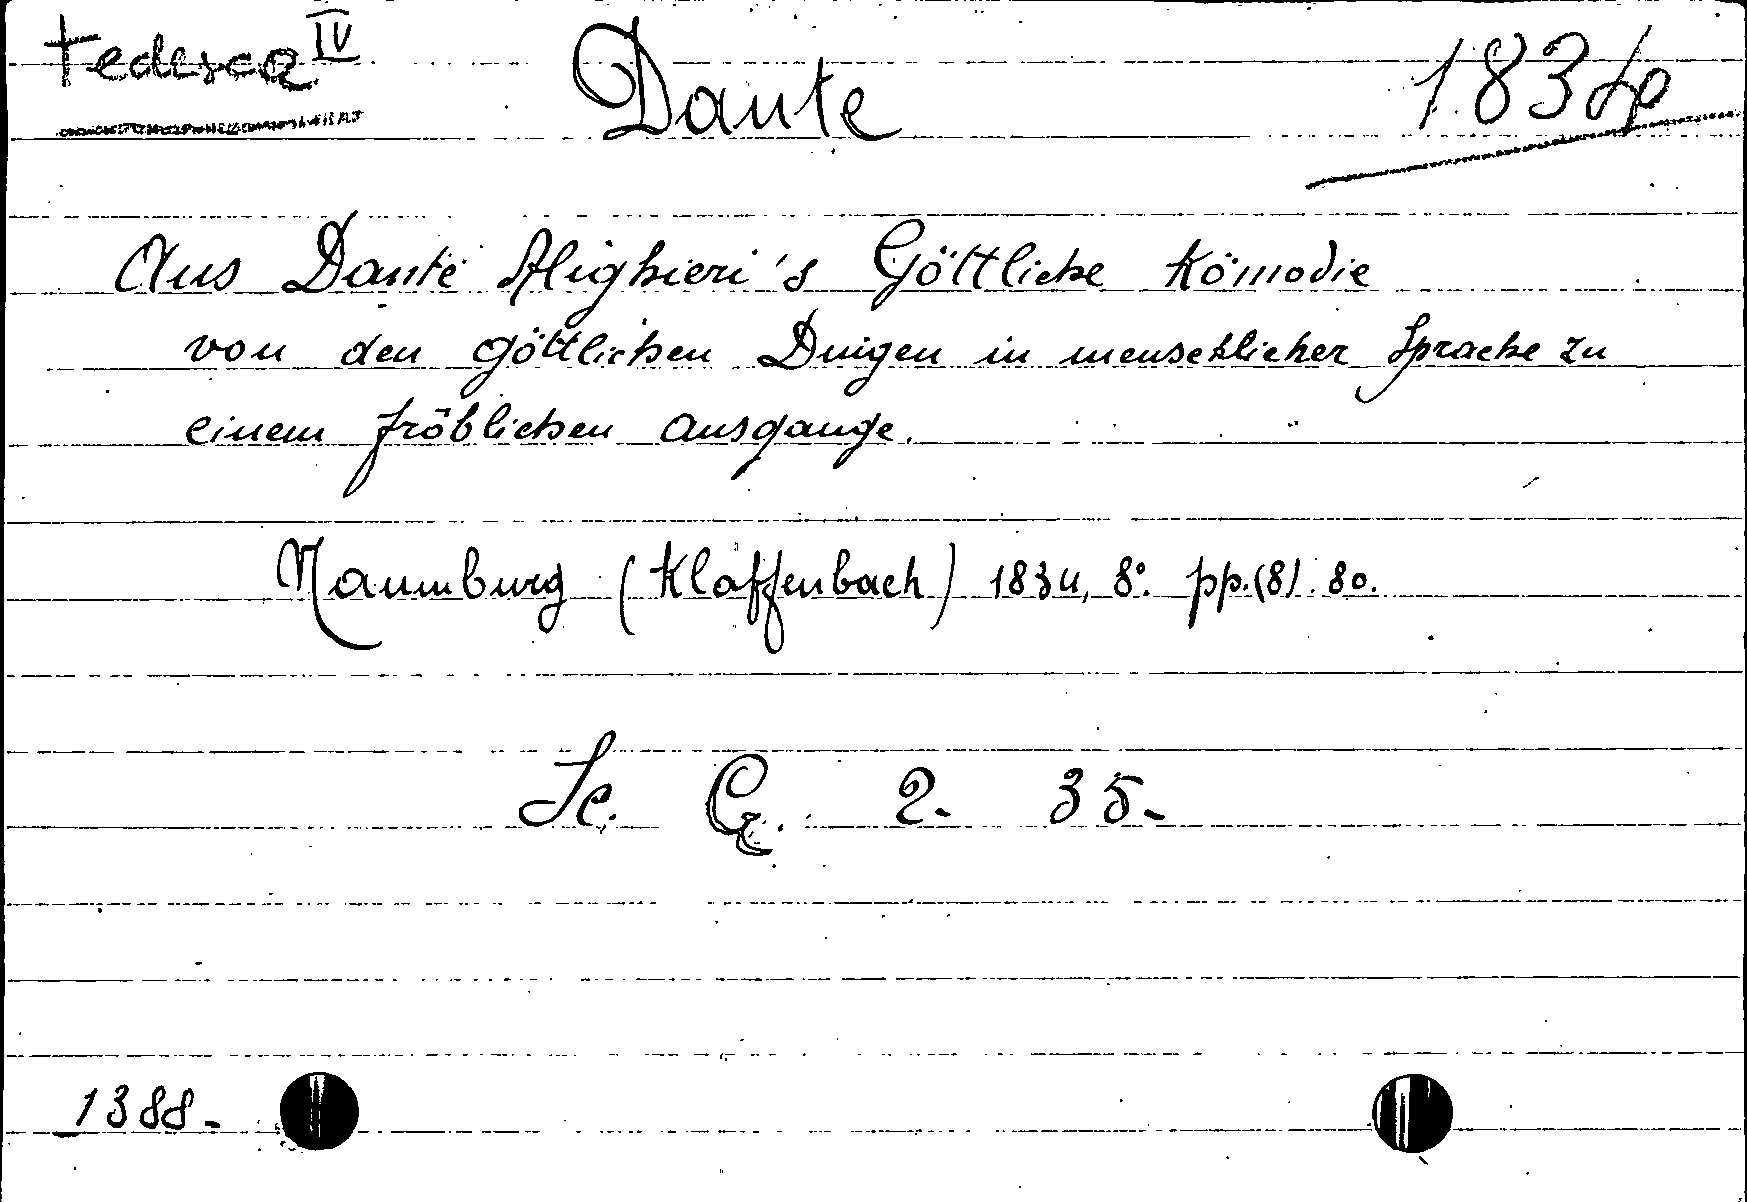 Tedesca IV
Dante
1834
Aus Dante Alighieri's Göttliche Kömodie
von den göttlichen Dingen in menschlicher Sprache zu
einem fröhlichen Ausgange.
Naumburg (Klaffenbach) 1834, 8° pp. (8). 80.
2. 35.
1388.